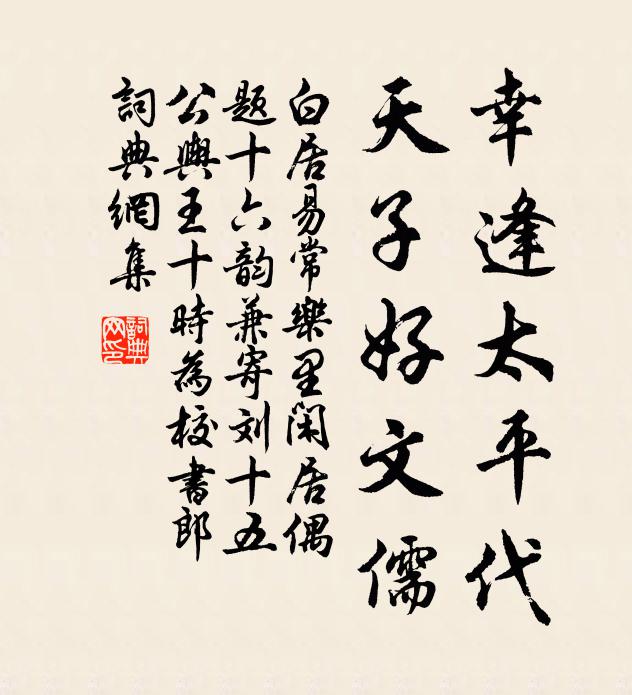 幸逢太平代
天子好文儒
白居易常樂里閑居偶
題十六韵兼寄刘十五
公輿王十時為校書郎
詞典網集
詞典
网印